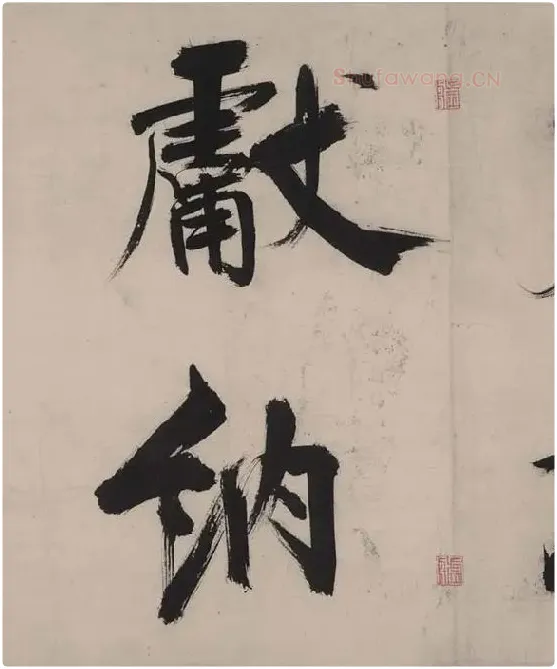 獻
納
Shufawang.CN